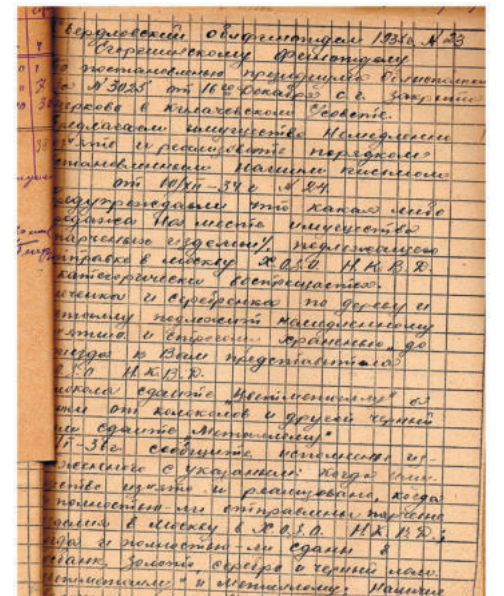 вердловский облфинотдел 1935г. № 23
Егоршинскому Финотделу
постановлению президиума Облисполкома
№ 3025 от 16го Декабря с.г. закрыта
церковь в Кичачевском с/совете.
редлагаем имущество Немедленно
из'ять и реализовать порядком
становленным Нашим письмом
от 10/XII-34 г № 24.
едупреждаем что какая либо
родажа на месте имущества
парчевых изделий, подлежащего
тправке в Москву Х.О.З.О. Н.К.В.Д.
категорически воспрещается.
и серебренка по дереву и
подлежит немедленному
из'ятию и строгому хранению, до
риезда к Вам представителя
О.З.О Н.К.В.Д.
локола сдайте „Цветметлому" а
от колоколов и другой черный
сдайте „Металлому"
-36г сообщите исполнение из-
ложенного с указанием: когда иму-
ество из'ято и реализовано, когда
полностью-ли отправлены парчевые
делия в Москву в Х.О.З.О. Н.К.В.Д.;
гда и полностью-ли сданы в
осбанк, золото, серебро и черный лом.
ветметлому" и Метлому; Наличие